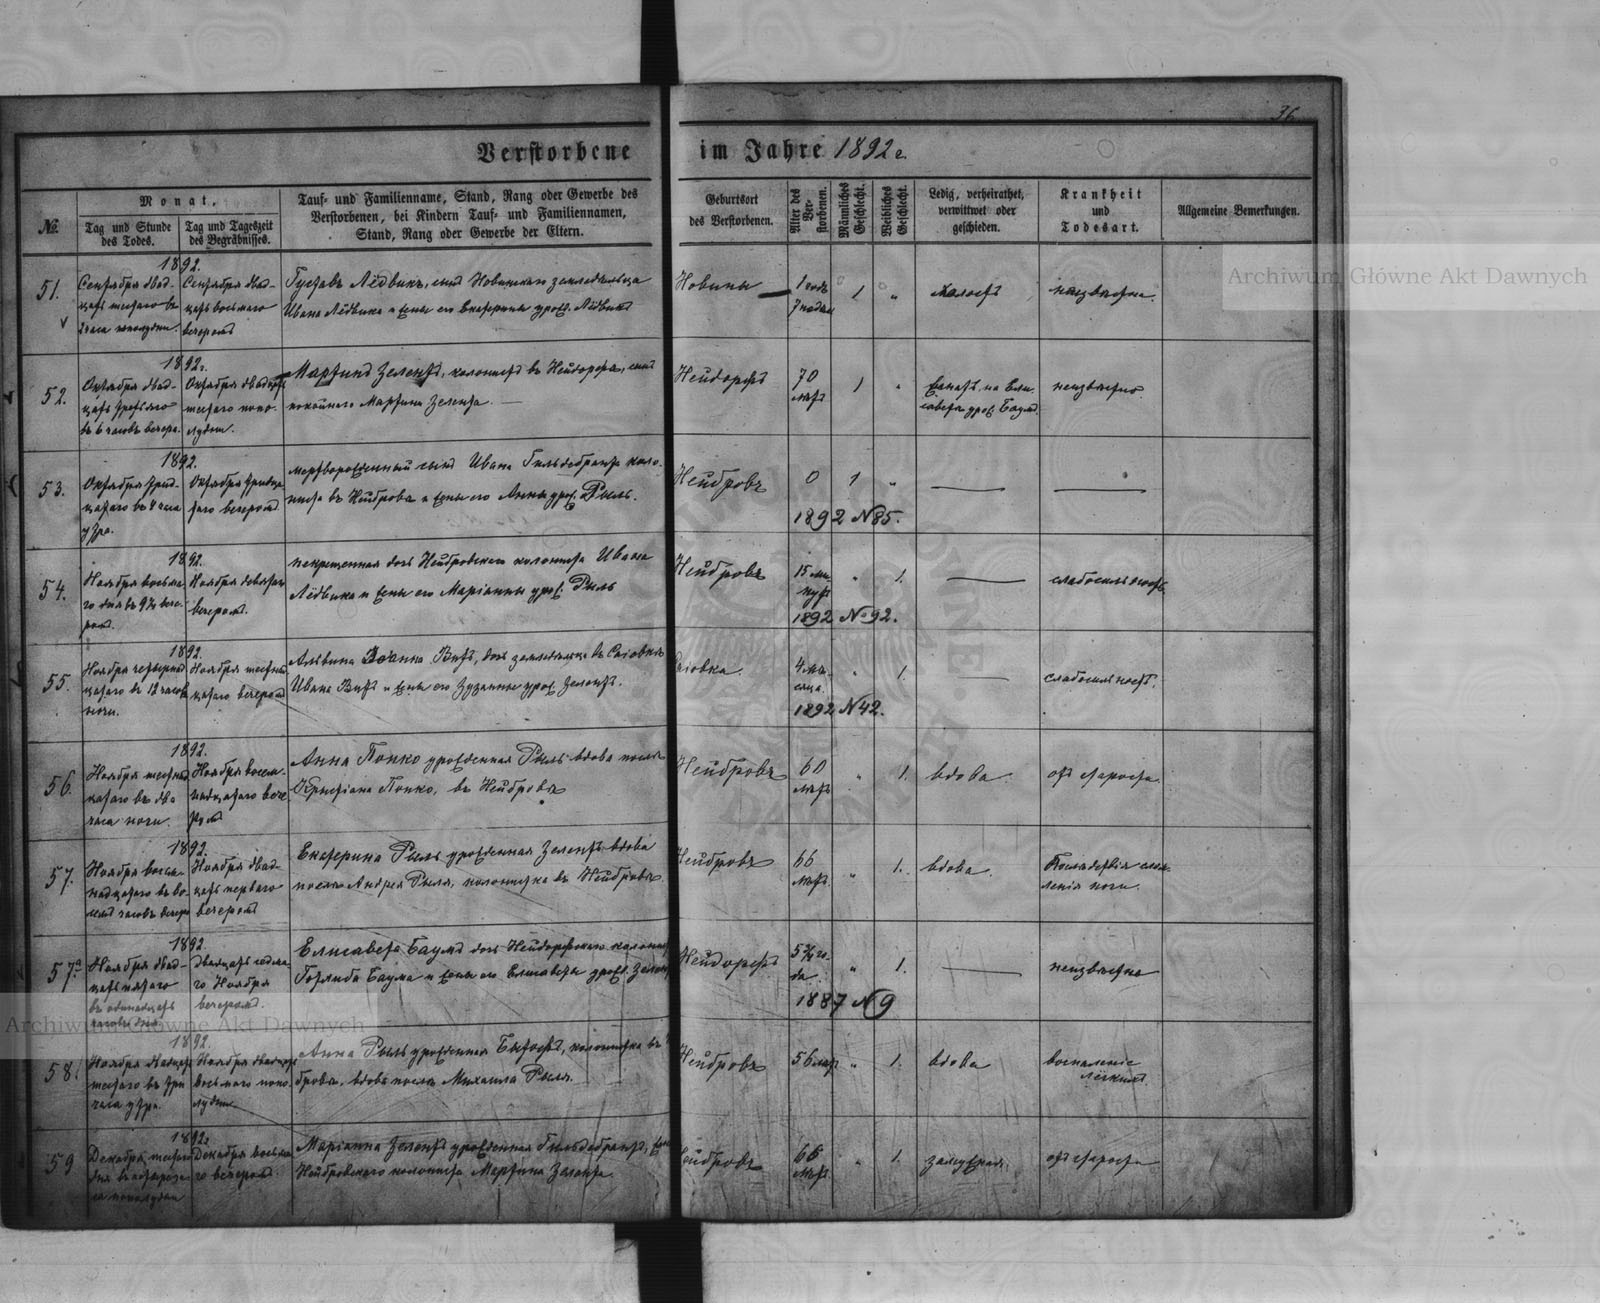 36
Verstorbene im Jahre 1892 г.
№
Monat,
Tag und Stunde des Todes.
Tag und Tageszeit des Begräbnisses.
Tauf- und Familienname, Stand, Rang oder Gewerbe des
Verstorbenen, bei Kindern Tauf- und Familiennamen,
Stand, Rang oder Gewerbe der Eltern.
Geburtsort
des Verstorbenen.
Alter des Verstorbenen.
Männliches Geschlecht.
Weibliches Geschlecht.
Ledig, verheirathet,
verwittwet oder
geschieden.
Krankheit
und
Todesart.
Allgemeine Bemerkungen.
1892.
51.
Сентября двад-
цать шестаго въ
2 часа пополудни.
Сентября двад-
цать восьмаго
вечеромъ
Густавъ Лёдвихъ, сынъ Новинскаго земледѣльца
Ивана Лёдвиха и жены его Екатерины урож. Лёдвихъ
Новины
1 годъ
1 „
холостъ
неизвѣстна.
1892.
52.
Октября двад-
цать третьяго
въ 6 часовъ вечера.
Октября двадцать
шестаго попо-
лудни.
Мартинъ Зелентъ, колонистъ въ Нейдорфѣ, сынъ
покойнаго Мартина Зелента.
Нейдорфъ
70
лѣтъ
1 „
Женатъ на Ели-
савета урож. Баумъ.
неизвѣстно
1892.
53.
Октября трид-
цатаго въ 4 часа
утра.
Октября тридца-
таго вечеромъ
мертворожденный сынъ Ивана Гильдебранта коло-
ниста въ Нейбровѣ и жены его Анны урож. Рыль.
Нейбровъ
0 1 „
1892 №85.
1892.
54.
Ноября восьма-
го дня въ 9½ вече-
ромъ.
Ноября девятаго
вечеромъ.
некрещенная дочь Нейбровскаго колониста Ивана
Лёдвиха и жены его Маріанны урож. Рыль
Нейбровъ
15 ми-
нутъ
„ 1.
слабосильность
1892 №92.
1892.
55.
Ноября четырнад-
цатаго въ 12 часовъ
ночи.
Ноября шестнад-
цатаго вечеромъ
Альвина Іоанна Витъ, дочь земледѣльца въ
Ивана Витъ и жены его Зузанны урож. Зелентъ.
4 мѣ-
сяца.
„ 1.
слабосильность.
1892 №42.
1892.
56.
Ноября шестнад-
цатаго въ два
часа ночи.
Ноября восем-
надцатаго вече-
ромъ
Анна Попко урожденная Рыль вдова послѣ
Христіана Попко, въ Нейбровѣ
Нейбровъ
60
лѣтъ
„ 1.
вдова
отъ старости
1892.
57.
Ноября восем-
надцатаго въ во-
семь часовъ вечера
Ноября двад-
цать перваго
вечеромъ
Екатерина Рыль урожденная Зелентъ вдова
послѣ Андрея Рыля, колонистка въ Нейбровѣ.
Нейбровъ
66
лѣтъ
„ 1.
вдова.
ленія ноги.
1892
57а
Ноября двад-
цать пятаго
въ одиннадцать
часовъ дня
двадцать седьма-
го Ноября
вечеромъ.
Елисавета Баумъ дочь Нейдорфскаго колониста
Готлиба Баума и жены его Елисаветы урож. Зелентъ
Нейдорфъ
„ 1.
неизвѣстно
1887 №9
1892.
58.
Ноября двадцать
шестаго въ три
часа утра.
Ноября двадцать
восьмаго попо-
лудни
Анна Рыль урожденная Бытофъ, колонистка въ
бровѣ, вдова послѣ Михаила Рыля.
Нейбровъ
56 лѣтъ
„ 1.
вдова
воспаленіе
лёгкихъ.
1892.
59
Декабря шестаго
дня въ четыре ча-
са пополудни
Декабря восьма-
го вечеромъ
Маріанна Зелентъ урожденная Гильдебрантъ, жена
Нейбровскаго колониста Мартина Зелента.
Нейбровъ
66
лѣтъ
„ 1.
замужняя.
отъ старости
Archiwum Główne Akt Dawnych
Archiwum Główne Akt Dawnych